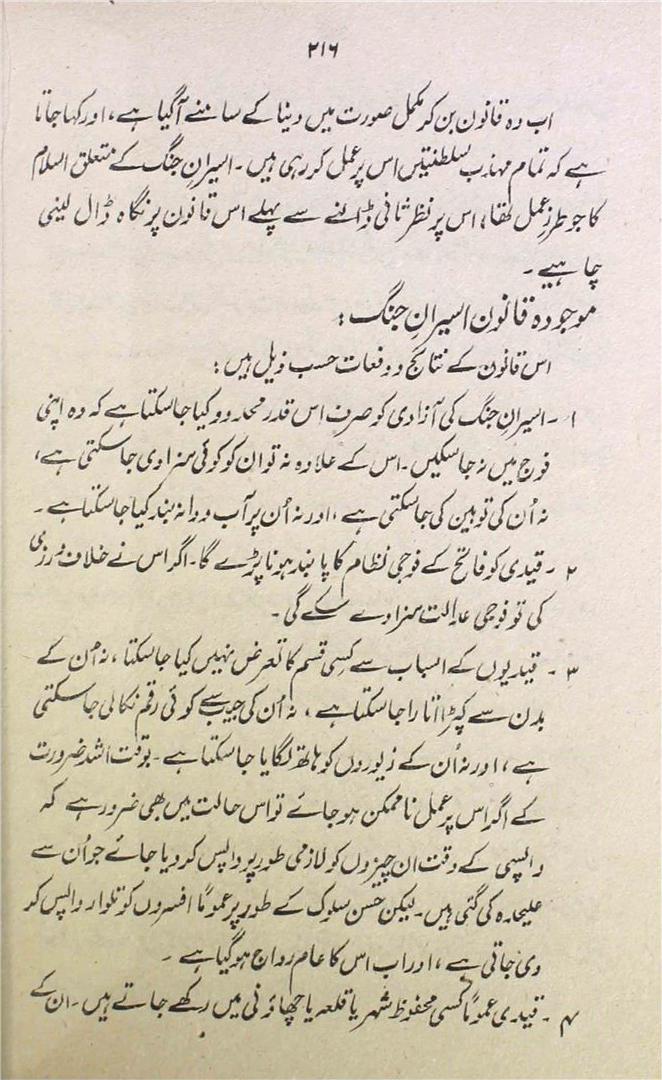 ۲۱۶
اب وہ قانون بن کر مکمل صورت میں دنیا کے سامنے آگیا ہے، اور کہا جاتا
ہے کہ تمام مہذب سلطنتیں اس پر عمل کر رہی ہیں۔ اسیرانِ جنگ کے متعلق اسلام
کا جو طرزِ عمل تھا، اس پر نظر ثانی ڈالنے سے پہلے اس قانون پر نگاہ ڈال لینی
چاہیے۔
موجودہ قانون اسیرانِ جنگ :
اس قانون کے نتائج و دفعات حسب ذیل ہیں :
۱۔ اسیرانِ جنگ کی آزادی کو صرف اس قدر محدود کیا جا سکتا ہے کہ وہ اپنی
فوج میں نہ جا سکیں۔ اس کے علاوہ نہ تو ان کو کوئی سزا دی جا سکتی ہے،
نہ اُن کی توہین کی جا سکتی ہے، اور نہ اُن پر آب و دانہ بند کیا جا سکتا ہے۔
۲۔ قیدی کو فاتح کے فوجی نظام کا پابند ہونا پڑے گا۔ اگر اس نے خلاف ورزی
کی تو فوجی عدالت سزا دے سکے گی۔
۳۔ قیدیوں کے اسباب سے کسی قسم کا تعرض نہیں کیا جا سکتا، نہ اُن کے
بدن سے کپڑا اتارا جا سکتا ہے، نہ اُن کی جیب سے کوئی رقم نکالی جا سکتی
ہے، اور نہ اُن کے زیوروں کو ہاتھ لگایا جا سکتا ہے۔ بوقت اشد ضرورت
کے اگر اس پر عمل ناممکن ہو جائے تو اس حالت میں بھی ضرور ہے کہ
واپسی کے وقت ان چیزوں کو لازمی طور پر واپس کر دیا جائے جو اُن سے
علیحدہ کی گئی ہیں۔ لیکن حسن سلوک کے طور پر عموماً افسروں کو تلوار واپس کر
دی جاتی ہے، اور اب اس کا عام رواج ہو گیا ہے۔
۴۔ قیدی عموماً کسی محفوظ شہر یا قلعہ یا چھاؤنی میں رکھے جاتے ہیں۔ ان کے